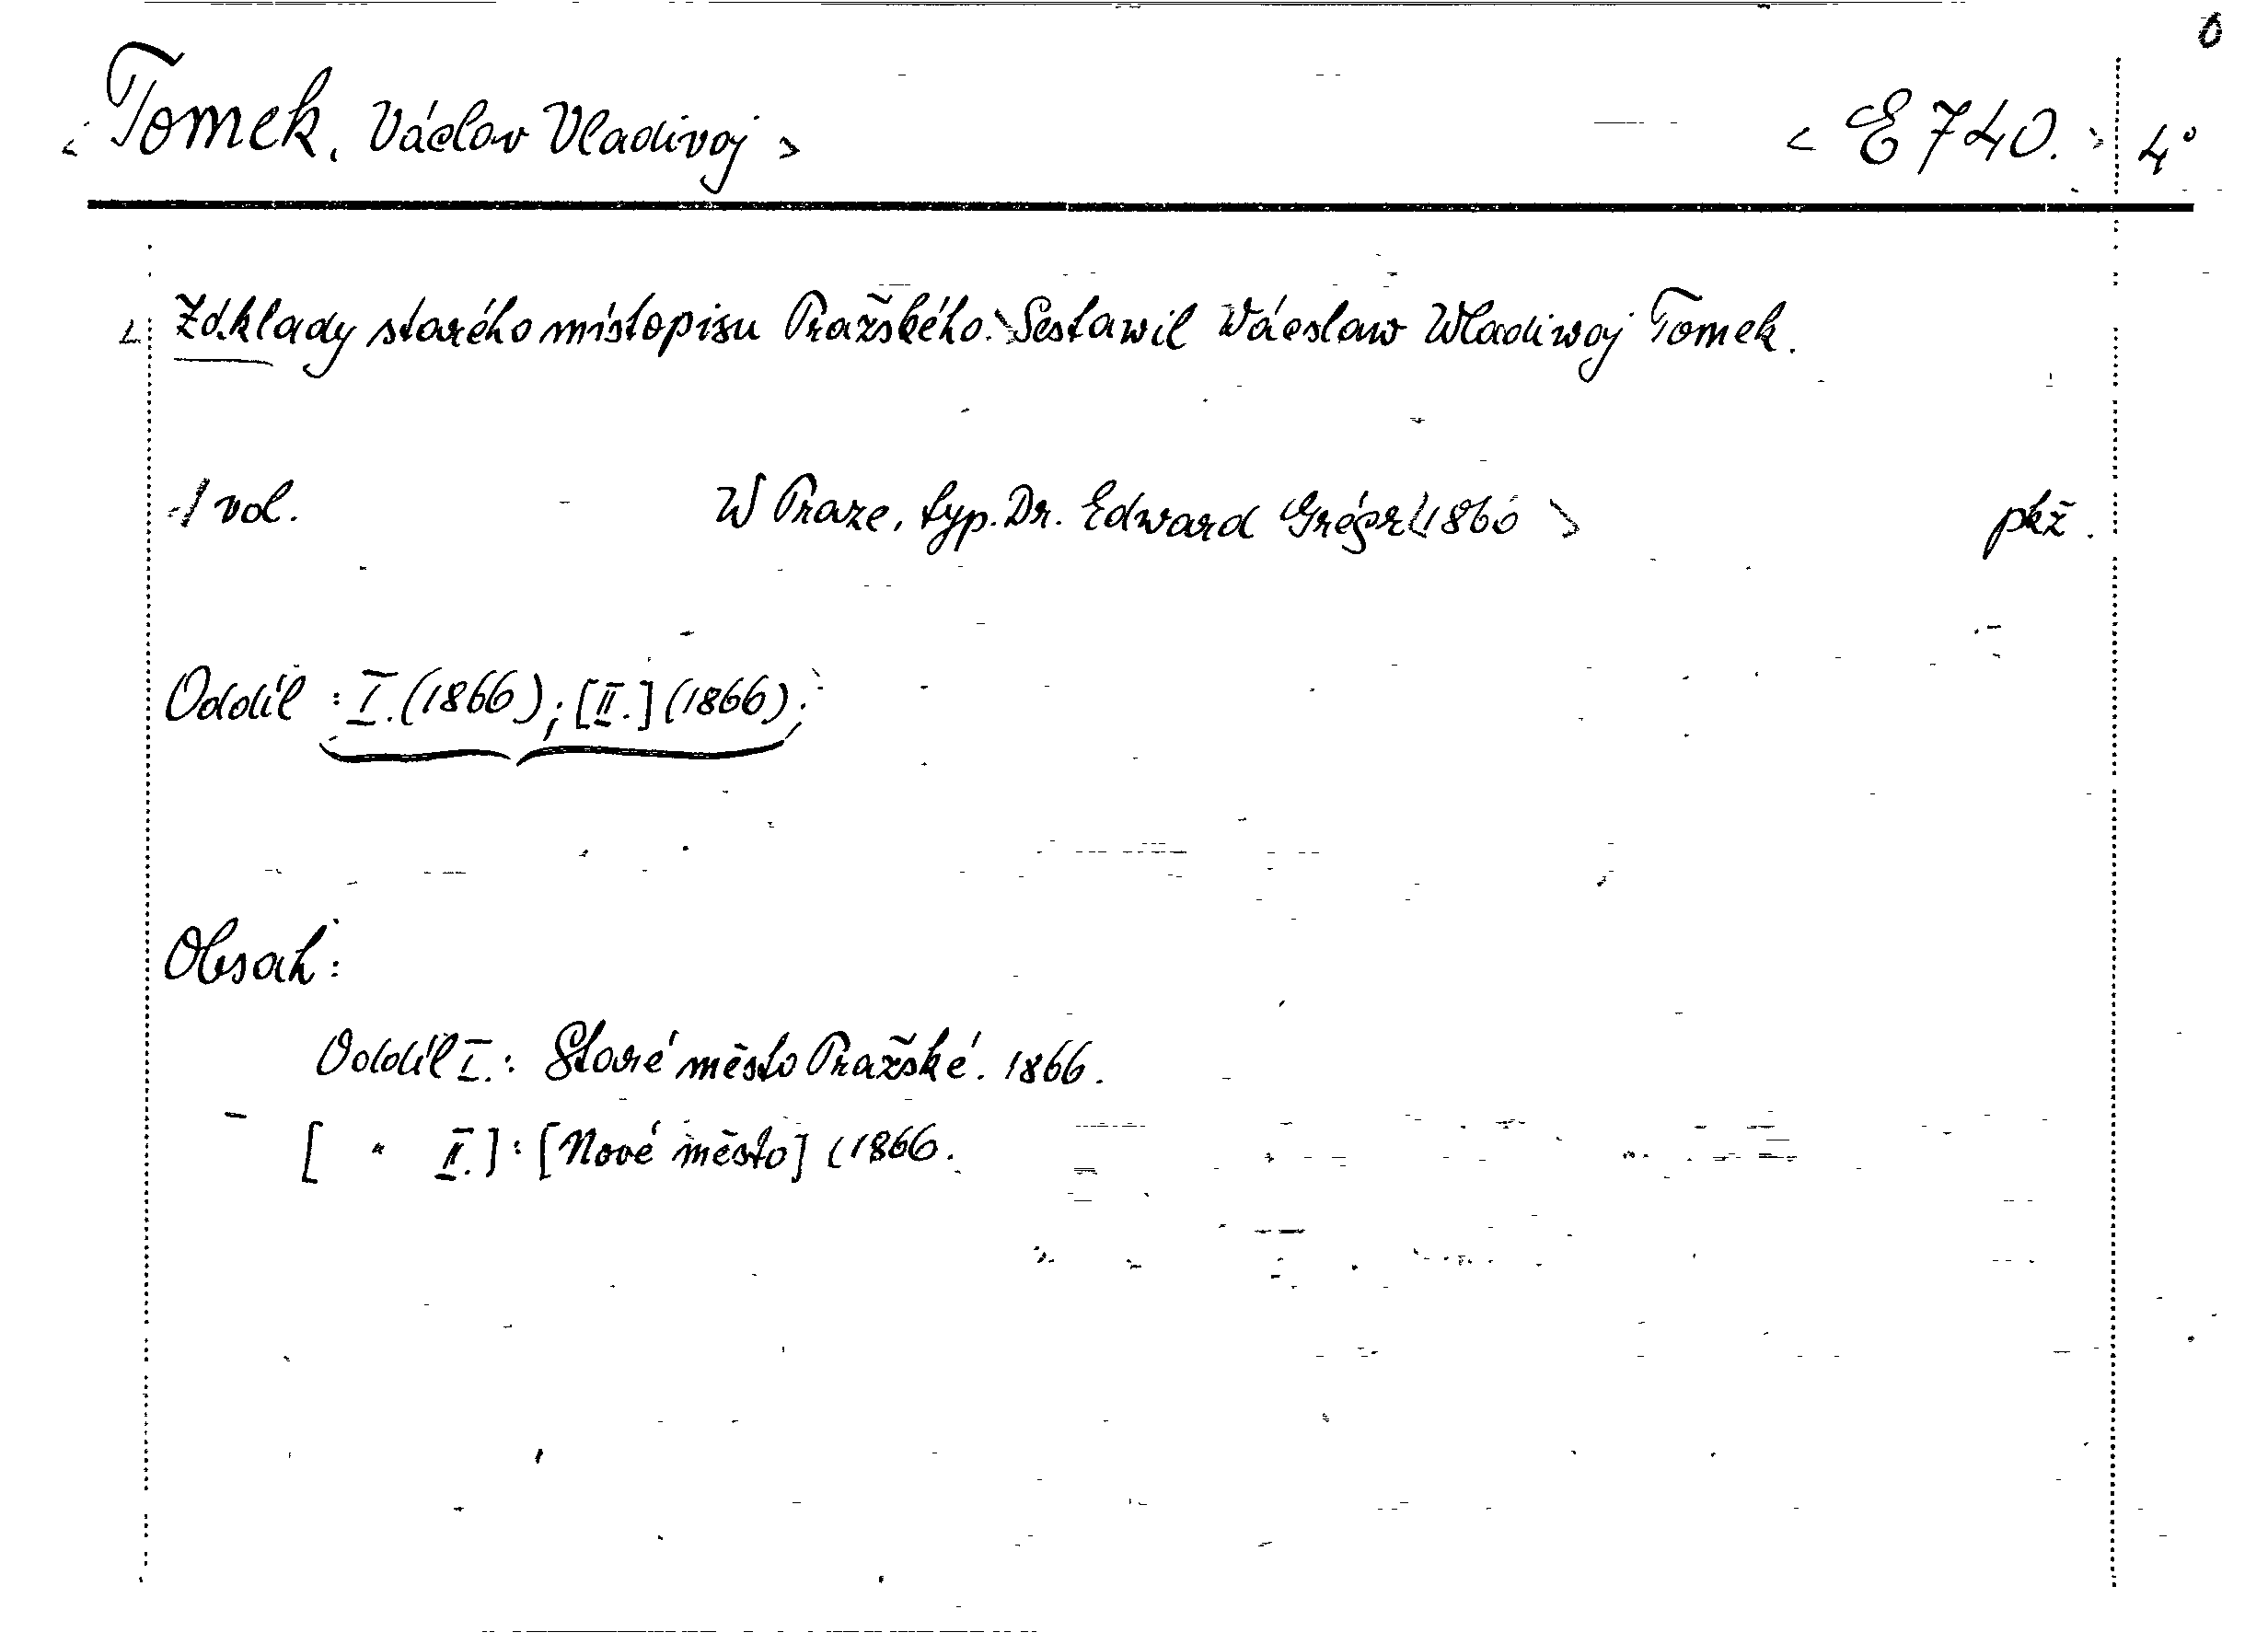 Tomek, Václav Vladivoj > < E 740. > 4°
Základy starého místopisu Pražského. Sestawil Wácslaw Wladiwoj Tomek.
1 vol. W Praze, typ. Dr. Edward Grégr (1866 > pkž.
Oddíl : I. (1866); [II.] (1866);
Obsah:
Oddíl I.: Staré město Pražské. 1866.
[ " II.] : [Nové město] (1866.